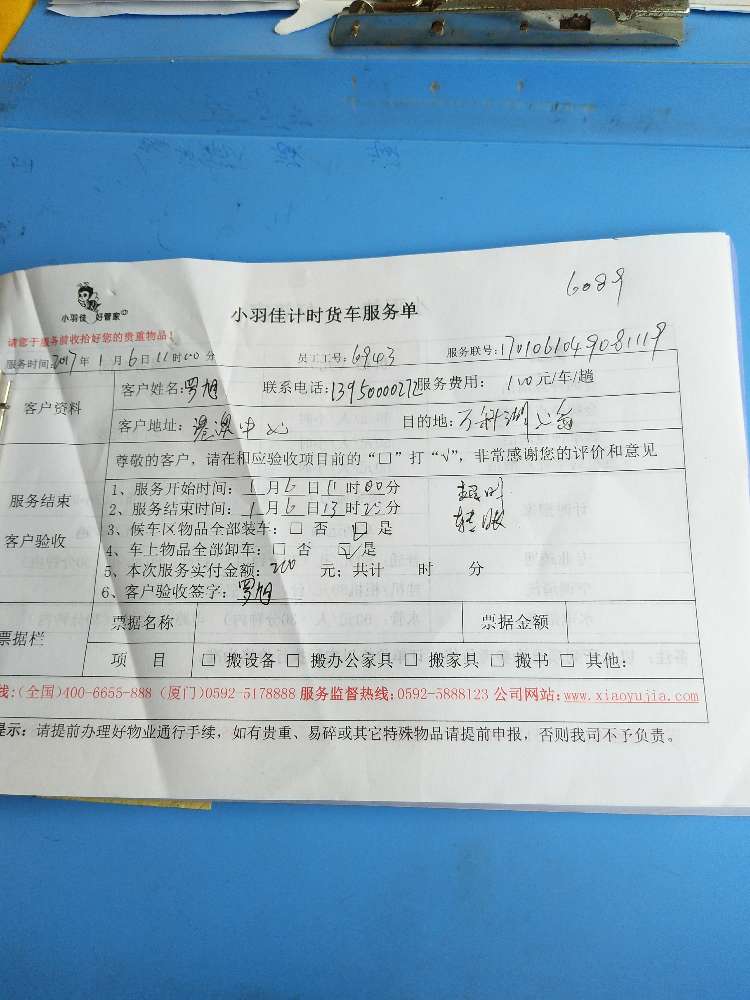 6089
小羽佳 好管家
小羽佳计时货车服务单
请您于服务前收拾好您的贵重物品！
服务时间:2017年1月6日11时00分 员工工号:6943 服务联号:1701061049081119
客户资料
客户姓名:罗旭 联系电话:13950000272服务费用: 100元/车/趟
客户地址:港澳中心 目的地:万科湖心岛
尊敬的客户，请在相应验收项目前的“□”打“√”，非常感谢您的评价和意见
服务结束
客户验收
1、服务开始时间:1月6日11时00分 超时
2、服务结束时间:1月6日13时25分 转账
3、候车区物品全部装车:□ 否 ☑是
4、车上物品全部卸车:□ 否 ☑是
5、本次服务实付金额:200 元；共计 时 分
6、客户验收签字:罗旭
票据栏
票据名称 票据金额
项 目 □ 搬设备 □ 搬办公家具 □ 搬家具 □ 搬书 □ 其他:
线:(全国)400-6655-888 (厦门)0592-5178888 服务监督热线:0592-5888123 公司网站:www.xiaoyujia.com
提示: 请提前办理好物业通行手续，如有贵重、易碎或其它特殊物品请提前申报，否则我司不予负责。